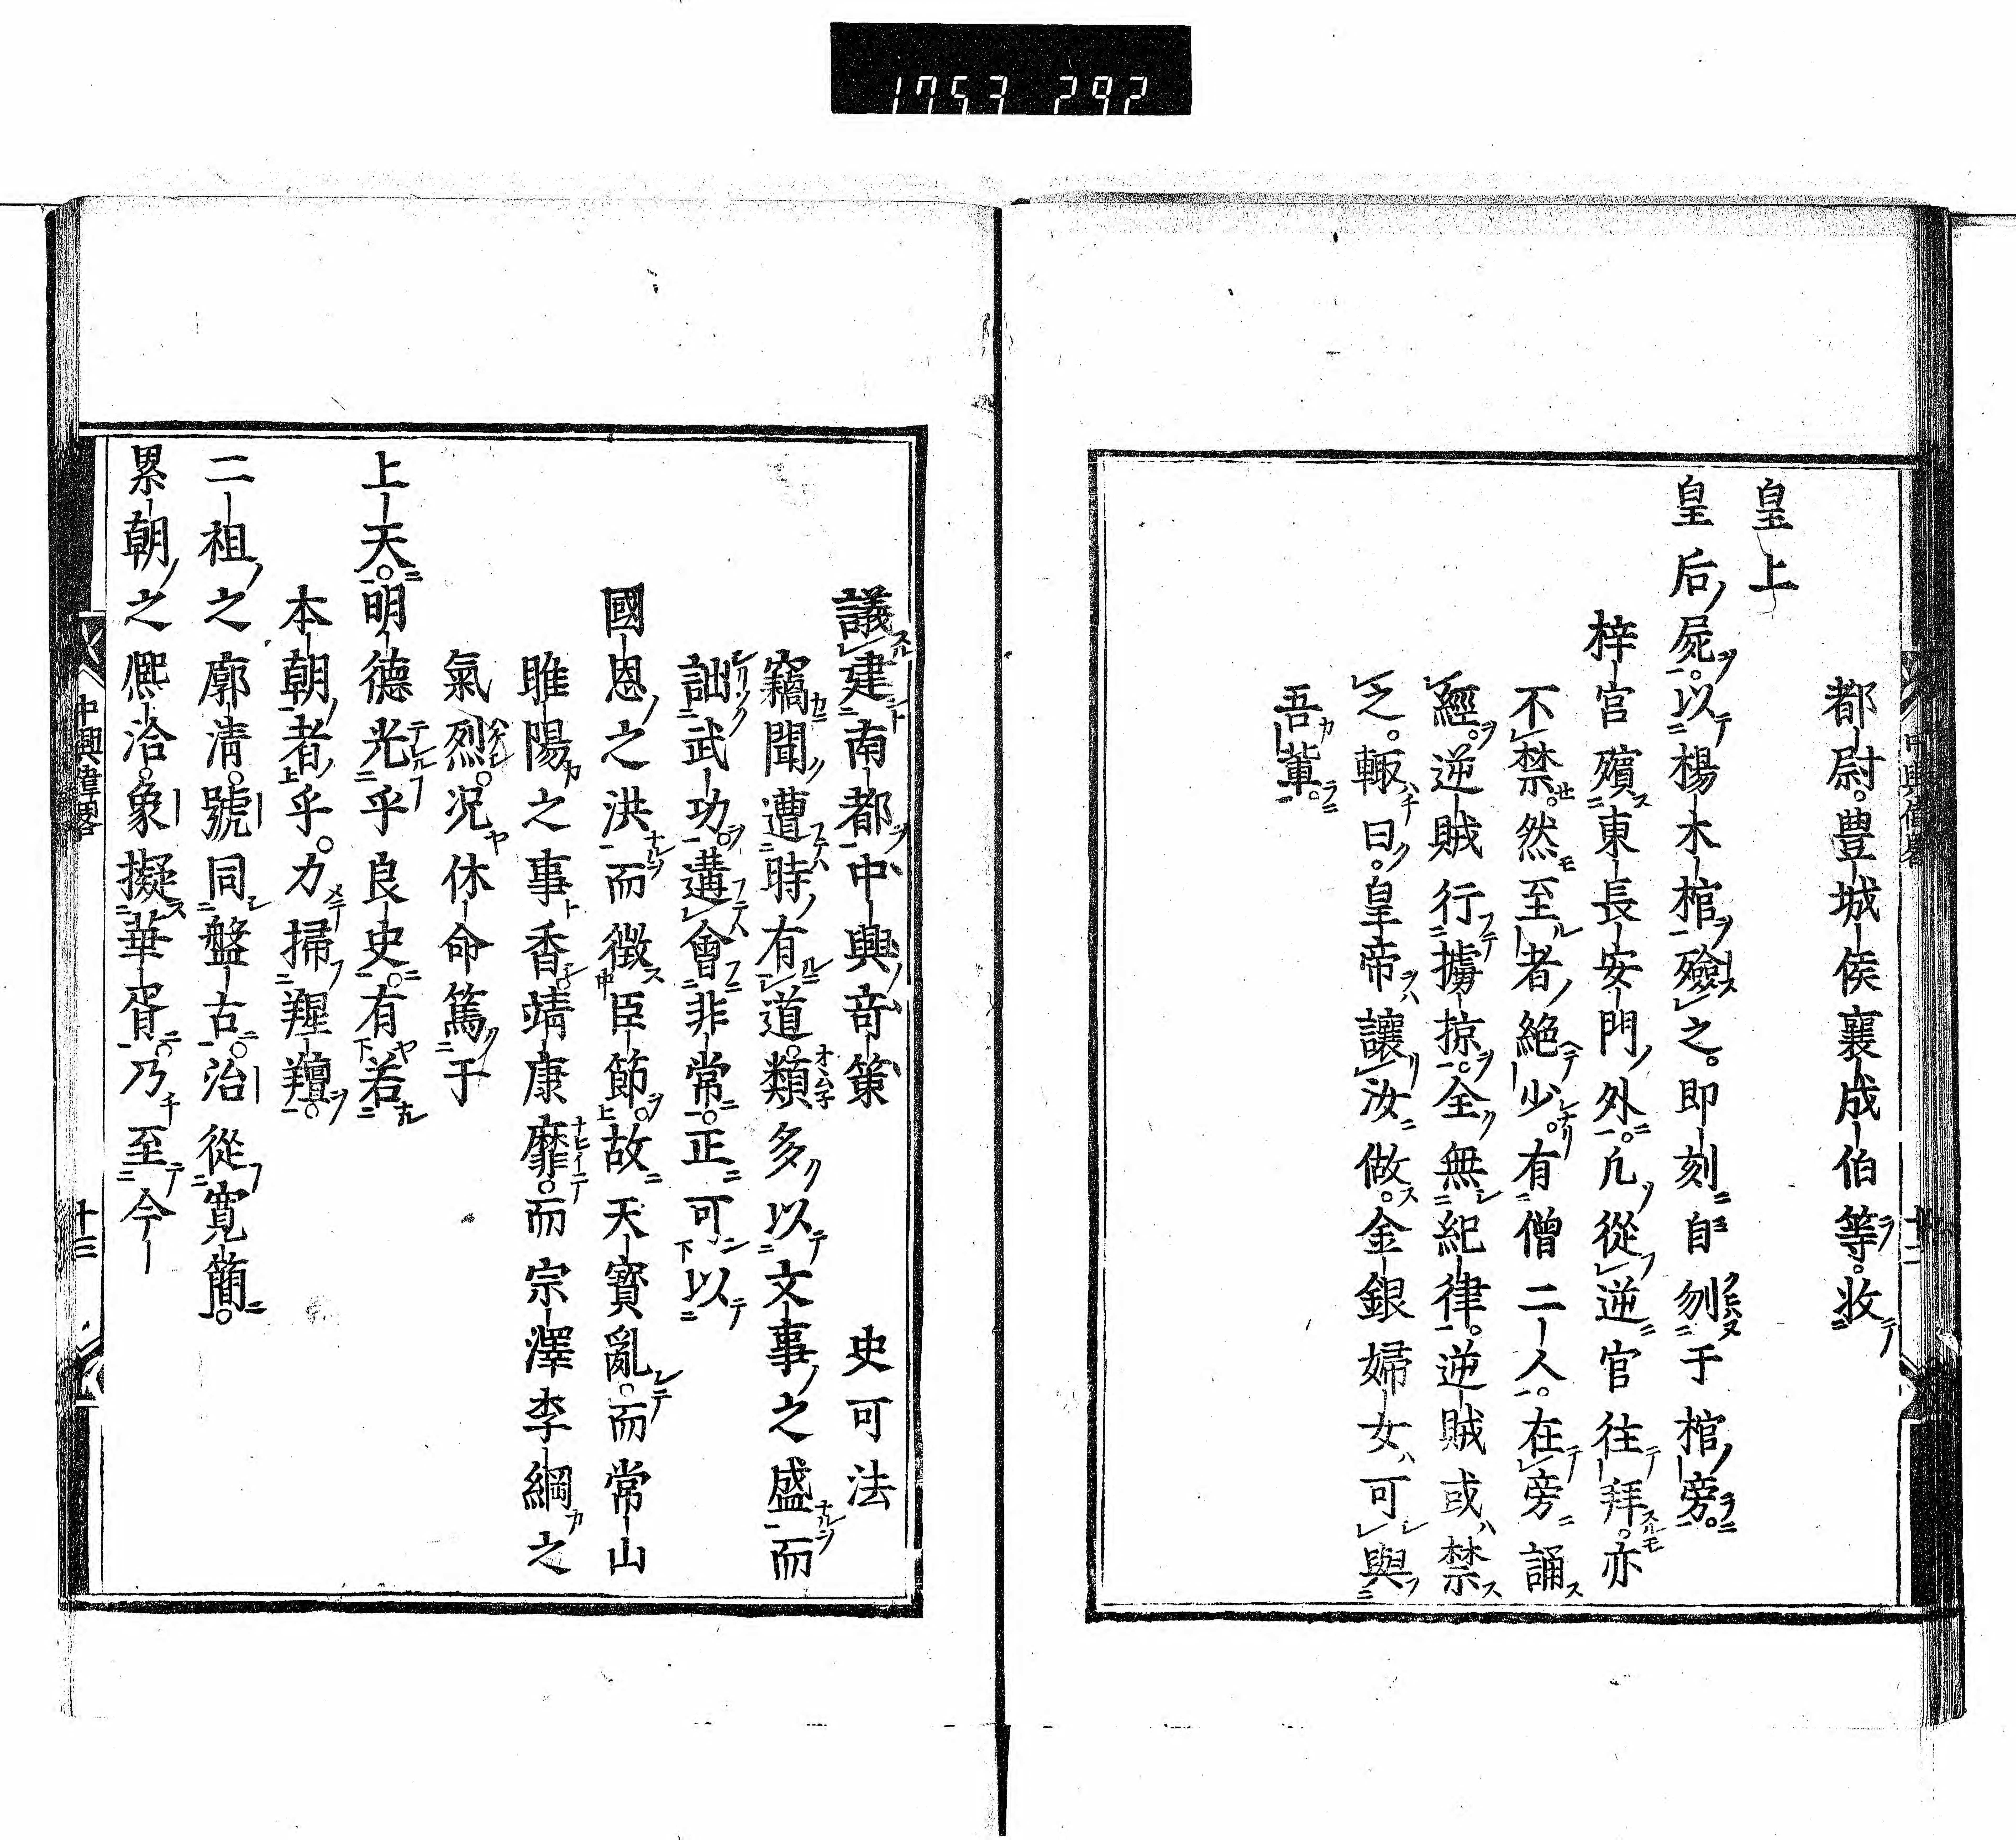 1753 292
都尉。豊城侯襄成伯等。收
皇上
皇后屍。以楊木棺殮之。即刻自刎于棺旁。
梓宮殯東長安門外。凢從逆官往拜。亦
不禁。然至者絕少。有僧二人。在旁誦
經。逆賊行擄掠。全無紀律。逆賊或禁
之。輙曰。皇帝讓汝做。金銀婦女可與
吾輩。
議建南都中興奇策 史可法
竊聞遭時有道。類多以文事之盛而
詘武功。遘會非常。正可以
國恩之洪而徴臣節。故天寳亂。而常山
睢陽之事香。靖康靡。而宗澤李綱之
氣烈。况休命篤于
上天。明德光乎良史。有若
本朝者乎。力掃羶羯。
二祖之廓清。號同盤古。治從寬簡。
累朝之熈洽。象擬華胥。乃至今
中興偉畧 十三